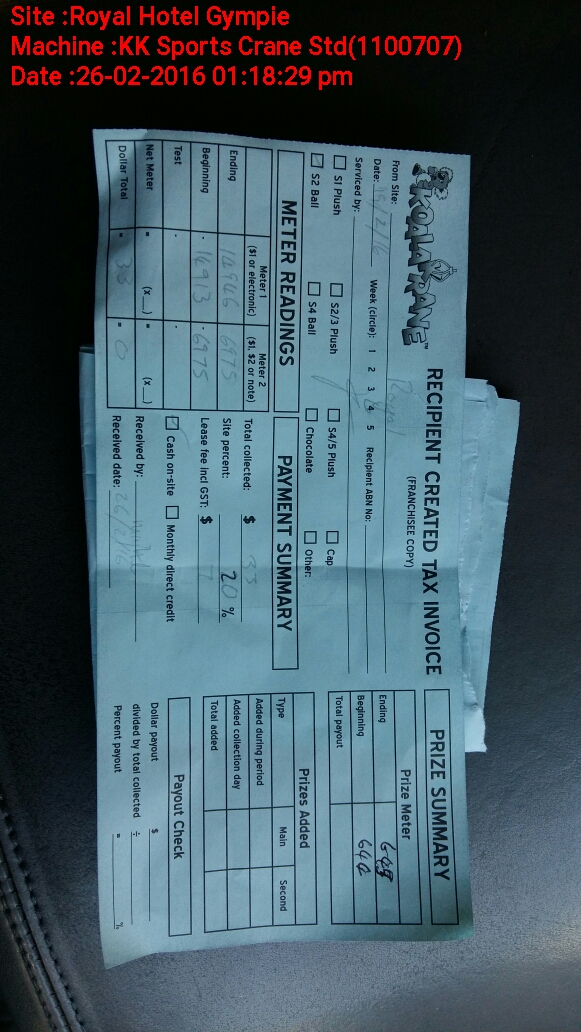 Site :Royal Hotel Gympie
Machine :KK Sports Crane Std(1100707)
Date :26-02-2016 01:18:29 pm
KOALA KRANE™
RECIPIENT CREATED TAX INVOICE
(FRANCHISEE COPY)
From Site: Royal
Date: Week (circle): 1 2 3 4 5 Recipient ABN No:
Serviced by:
S1 Plush S2/3 Plush S4/5 Plush Cap
S2 Ball S4 Ball Chocolate Other:
METER READINGS
Meter 1 Meter 2
($1 or electronic) ($1, $2 or note)
Ending 14946 6975
Beginning - 14913 - 6975
Test - -
Net Meter = (x__) = (x__)
Dollar Total = 33 = 0
PAYMENT SUMMARY
Total collected: $ 33
Site percent: 20 %
Lease fee incl GST: $ 7
Cash on-site Monthly direct credit
Received by:
Received date: 26/2/16
PRIZE SUMMARY
Prize Meter
Ending
Beginning 642
Total payout
Prizes Added
Type Main Second
Added during period
Added collection day
Total added
Payout Check
Dollar payout $
divided by total collected ÷
Percent payout = %